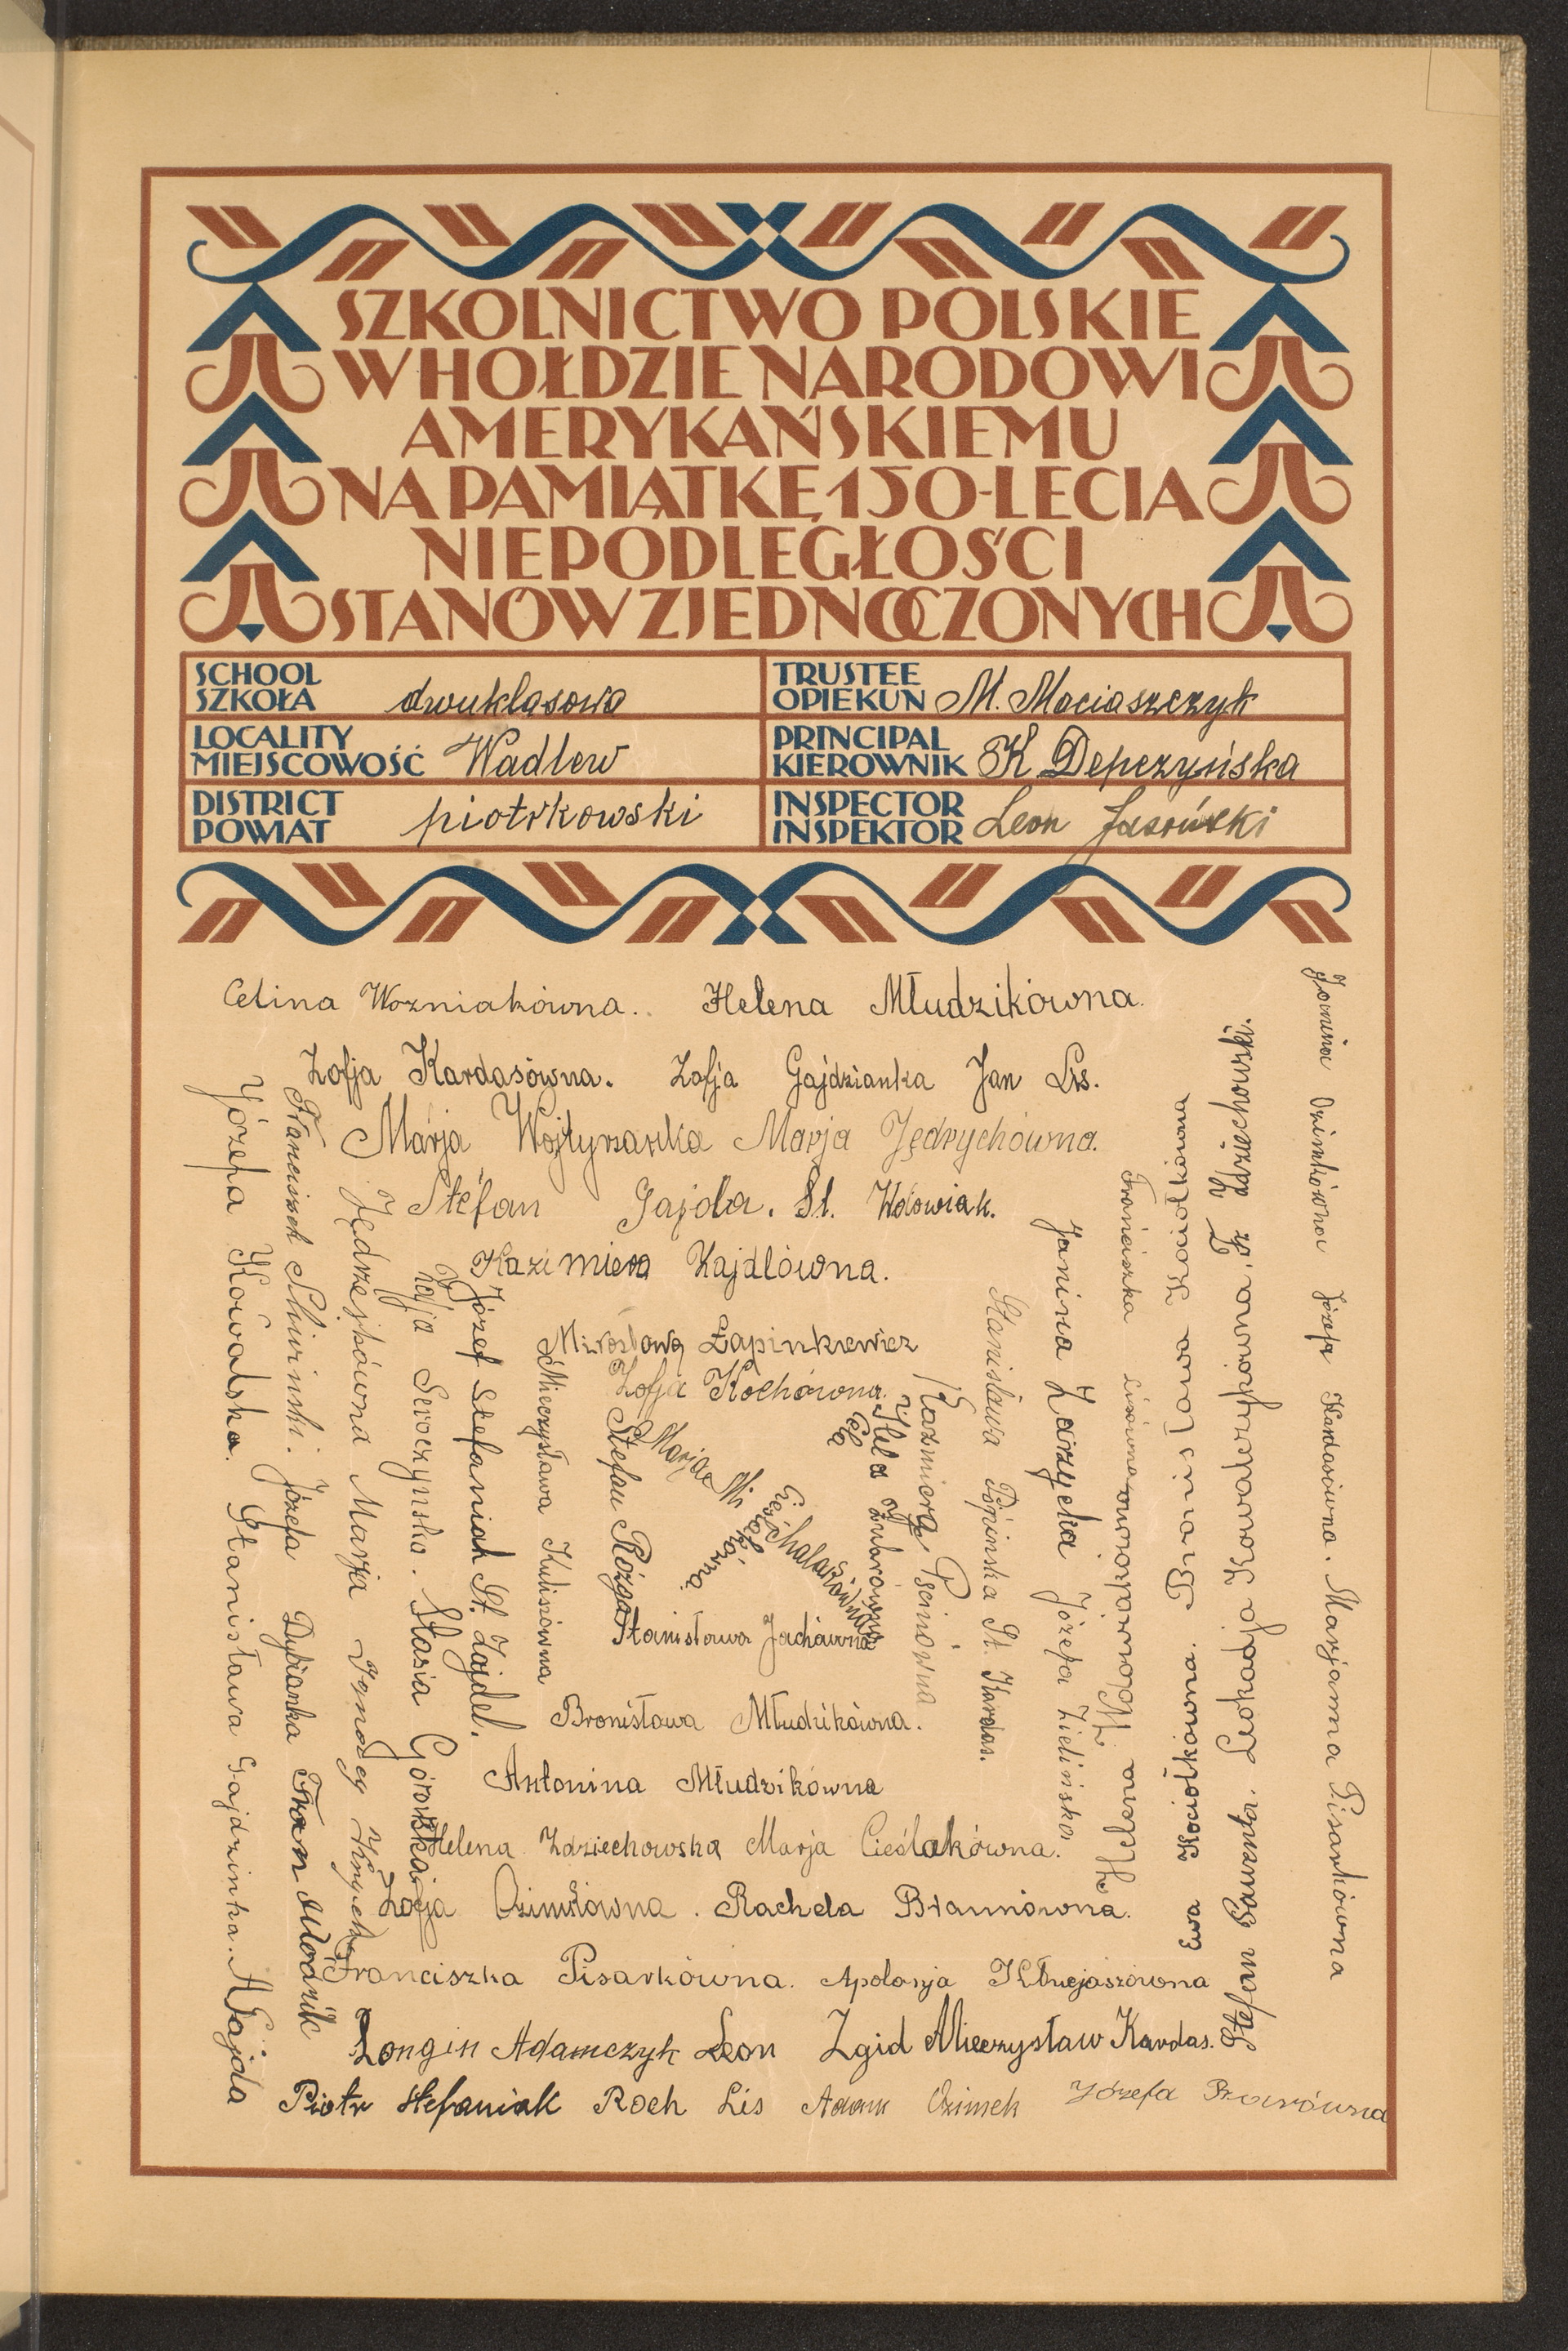 SZKOLNICTWO POLSKIE
W HOŁDZIE NARODOWI
AMERYKAŃSKIEMU
NA PAMIĄTKĘ 150-LECIA
NIEPODLEGŁOŚCI
STANÓW ZJEDNOCZONYCH
SCHOOL
SZKOŁA dwuklasowa
TRUSTEE
OPIEKUN M. Maciaszczyk
LOCALITY
MIEJSCOWOŚĆ Wadlew
PRINCIPAL
KIEROWNIK K Depczyńska
DISTRICT
POWIAT piotrkowski
INSPECTOR
INSPEKTOR Leon
Celina Wozniakówna. Helena Młudzikówna.
Zofja Kardasówna. Zofja Gajdzianka Jan Lis.
Marja Marja Jędrychówna.
Stefan Gajda. St. Wdowiak.
Kazimiera Zajdlówna.
Mirosława Łapinkiewicz
Zofja Kochówna.
Stanisława Jachówna
Bronisława Młudzikówna.
Antonina Młudzikówna
Helena Zdziechowska Marja Cieślakówna.
Zofja Ozimkówna. Rachela Braunówna.
Franciszka Pisarkówna. Apolonja
Longin Adamczyk Leon Zgid Mieczysław Kardas.
Piotr Stefaniak Roch Lis Adam Ozimek Józefa
Józefa Kowalska. Stanisława Gajdzinka. A Gajda
Franciszek Śliwiński. Józefa Dybianka Fran Mordzik
Jędrzejkówna Marja Ignacy
Zofja Seroczyńska. Stasia Górowska
Józef Stefaniak St. Zajdel.
Mieczysława Kulisiówna
Stefan Rózga
Marja Michalakówna
Hela Żubrówna
Kazimiera Pseinówna
Stanisława Pąpinska St. Kardas.
Janina Zarzycka Józefa Zielińska
Franciszka Lisówna Helena Wdowiakówna
Ewa Kociołkówna. Bronisława Kociołkówna
Stefan Leokadja Kowalczykówna. Fr. Zdziechowski.
Janina Ozimkówna Józefa Kardasówna. Marjanna Pisarkówna